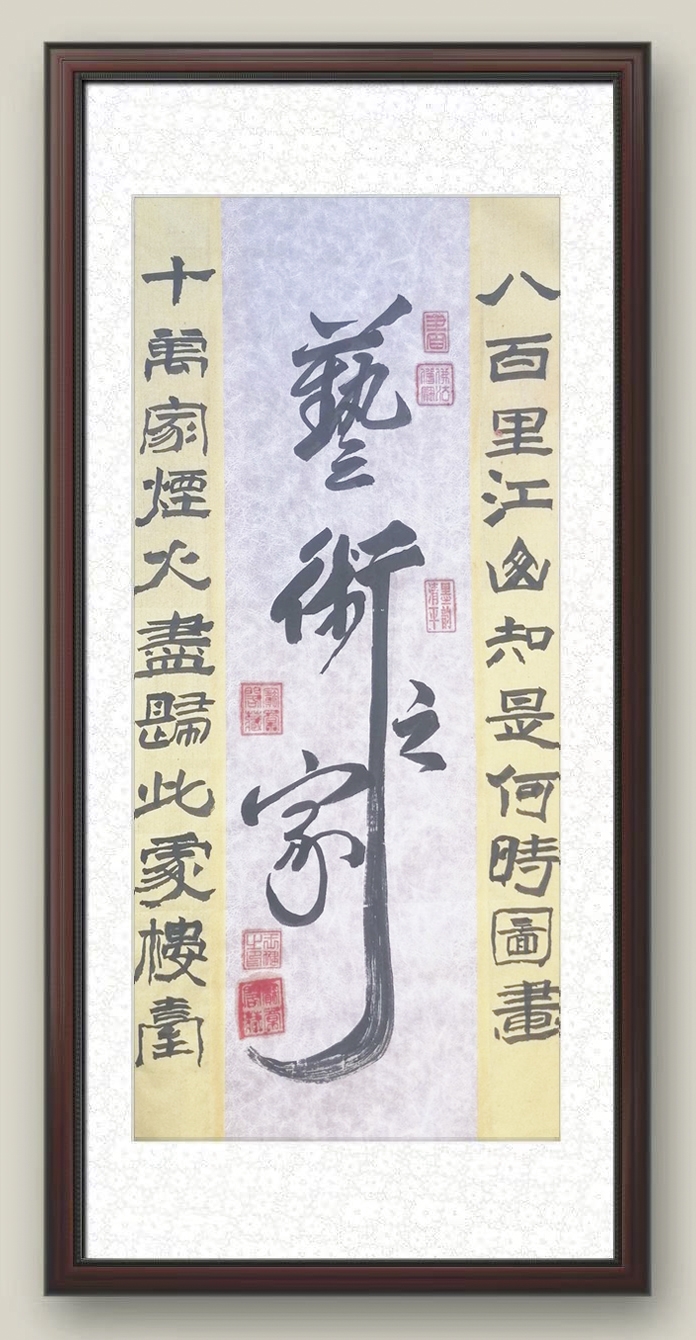 八百里江山知是何時圖畫
藝術之家
十萬家煙火盡歸此處樓臺